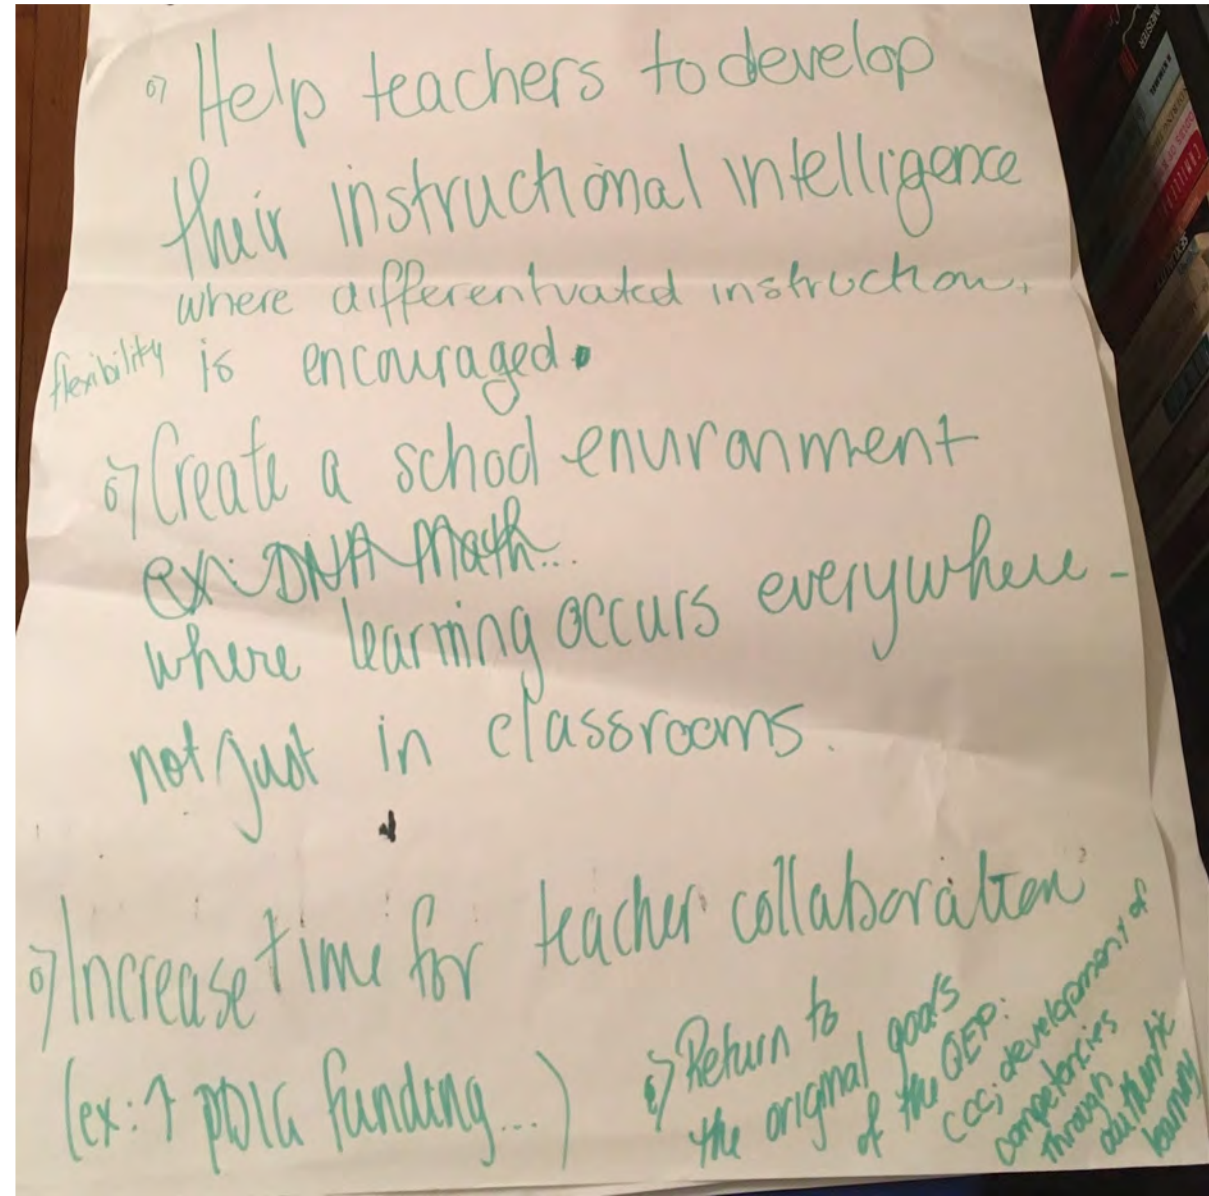 6) Help teachers to develop
their instructional intelligence
where differentuated instruction,
flexibility is encouraged.
6) Create a school enuronment
ex: DNA Math...
where learning occurs everywhere -
not just in classrooms.
6) Increase time for teacher collaboration
(ex: ↑ PDIG funding...)
6) Return to
the original goals
of the QEP:
CCC; development of
competencies
through
authentic
learning
MEISTER